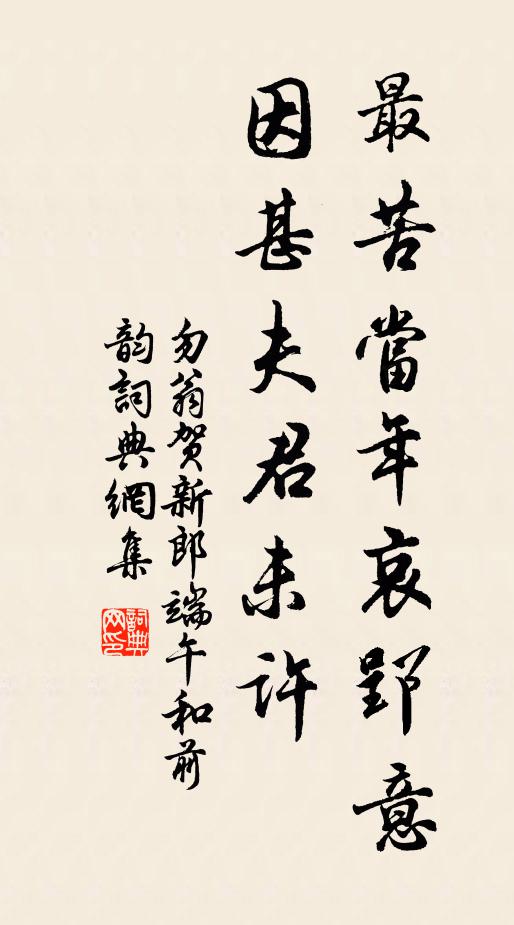 最苦當年哀郢意
因甚夫君未許
勿翁贺新郎端午和前
韵詞典網集
詞典
网印